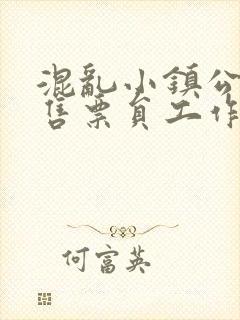 混乱小鎮公
售票員工作
何富英